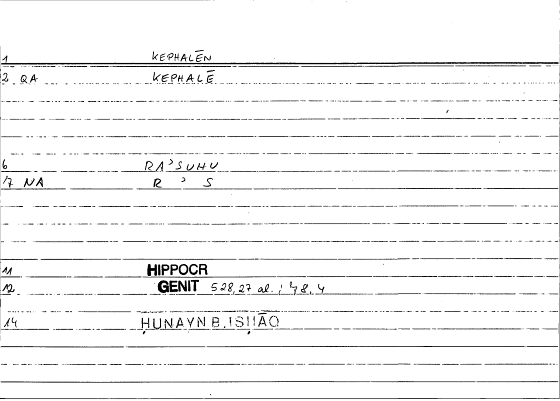 1 KEPHALĒN
2 QA KEPHALĒ
6 RAʾSUHU
7 NA R ʾ S
11 HIPPOCR
12 GENIT 528,27 al.; 48.4
14 ḤUNAYN B. ISḤĀQ